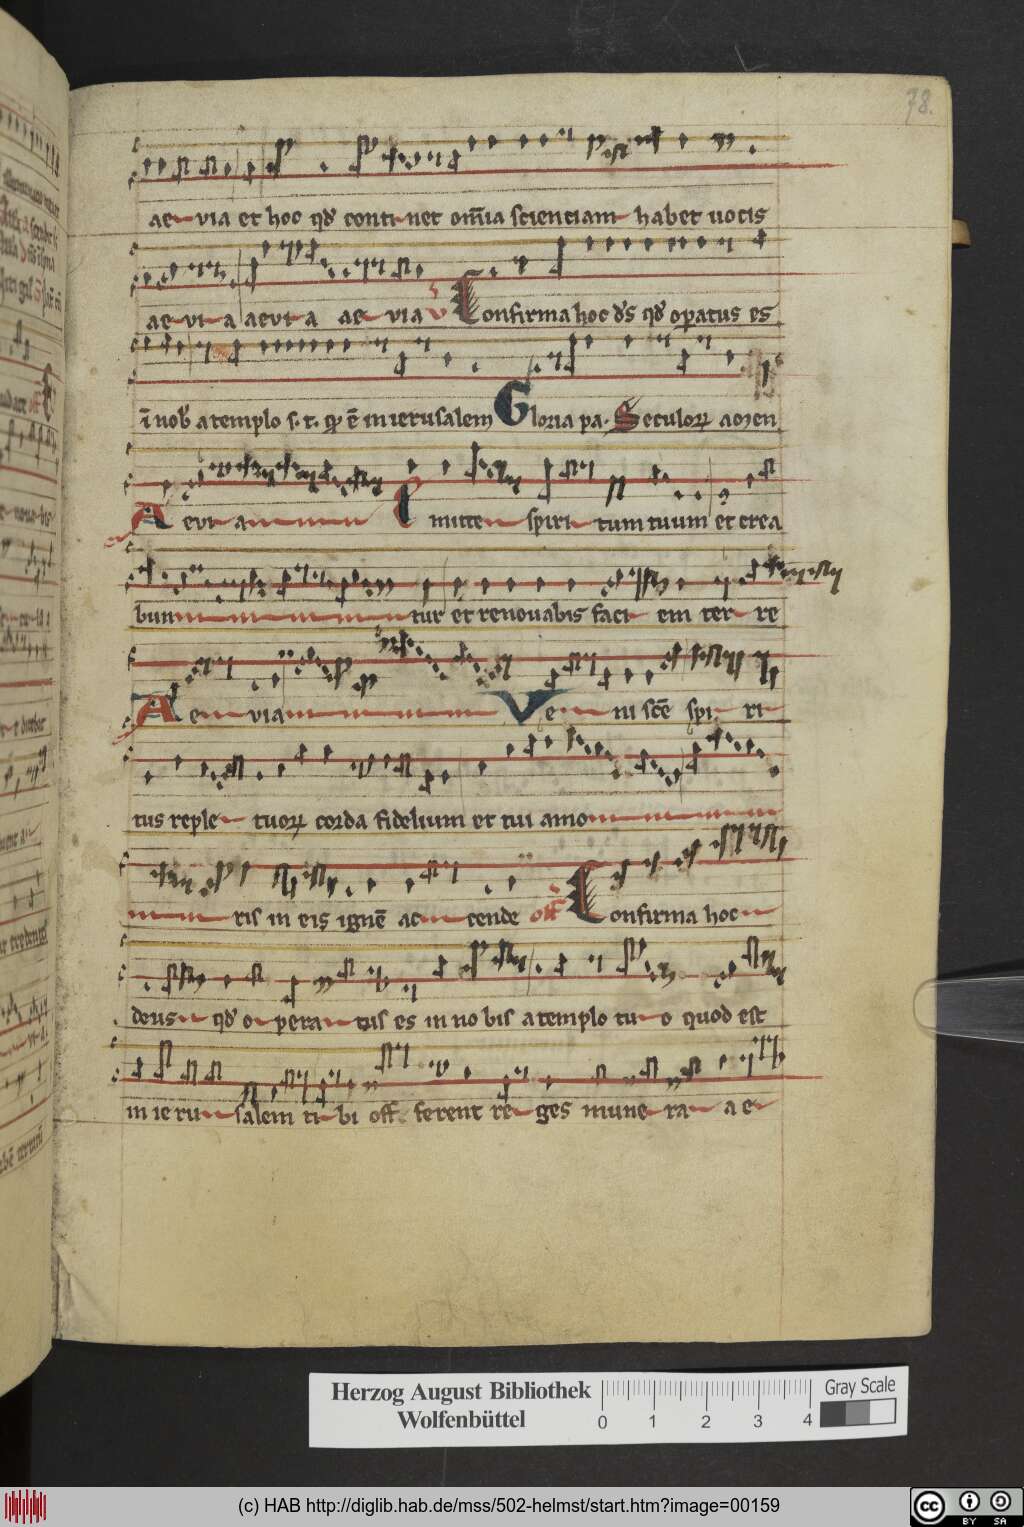 78.
ae via et hoc qd' conti net om̄ia scientiam habet uocis
ae vi a aevi a ae via v̄ Confirma hoc d's qd' opatus es
ī nob' a templo s. t. qͥ ē in ierusalem Gloria pa. Seculoꝝ amen
A evi a Emitte spiri tum tuum et crea
bun tur et renouabis faci em ter re
A e via Ve ni scē spi ri
tus reple tuoꝝ corda fidelium et tui amo
ris in eis ignē ac cende off Confirma hoc
deus qd' o pera tus es in no bis a templo tu o quod est
in ie ru salem ti bi off ferent re ges mune ra a e
Herzog August Bibliothek
Wolfenbüttel
0 1 2 3 4
Gray Scale
(c) HAB http://diglib.hab.de/mss/502-helmst/start.htm?image=00159
cc BY SA